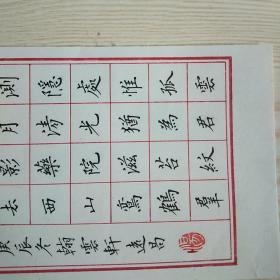 測隱處惟孤雲
月清光猶為君
影藥院滋苔紋
去西山鸞鶴羣
庚辰冬翰雲軒遠昌